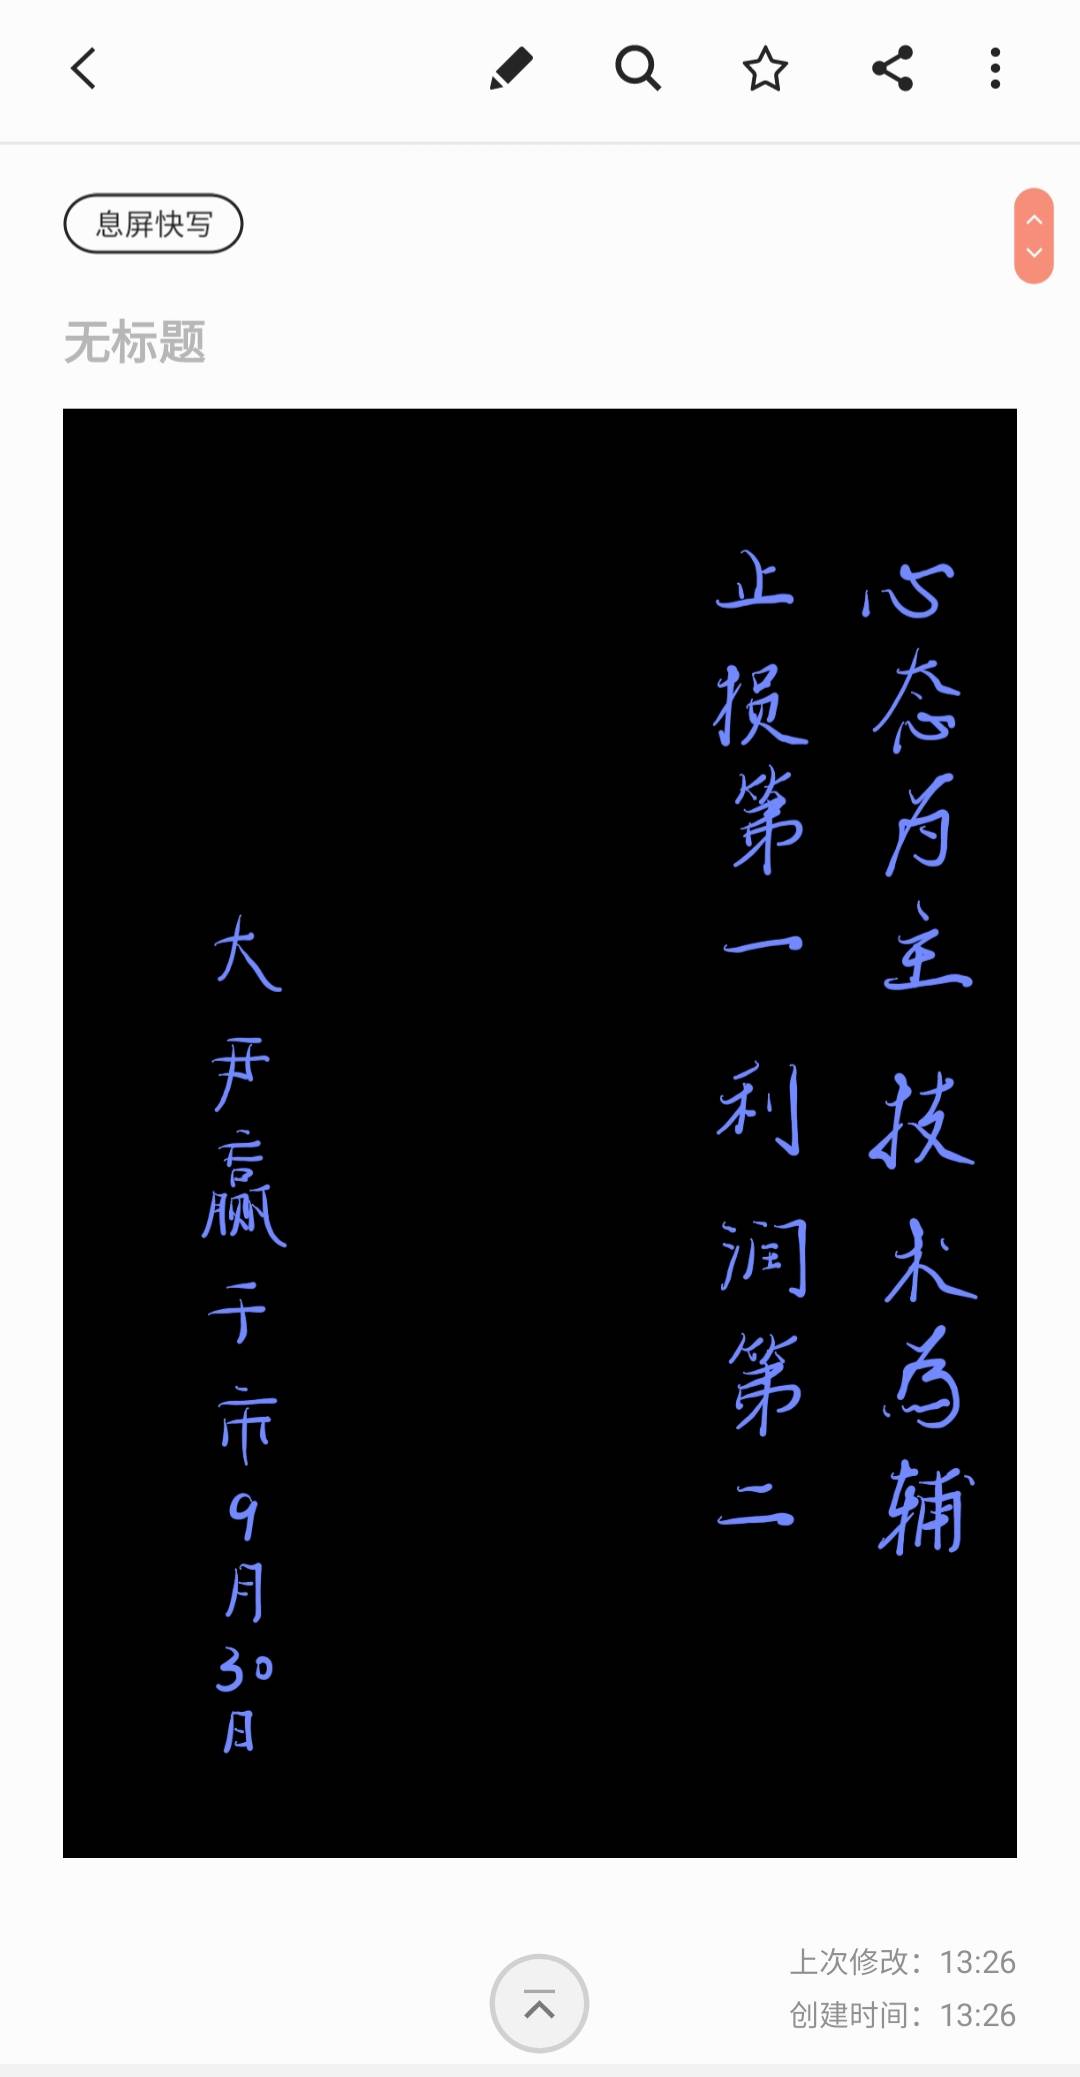 息屏快写
无标题
心态为主技术为辅
止损第一利润第二
大尹赢于市9月30日
上次修改：13:26
创建时间：13:26